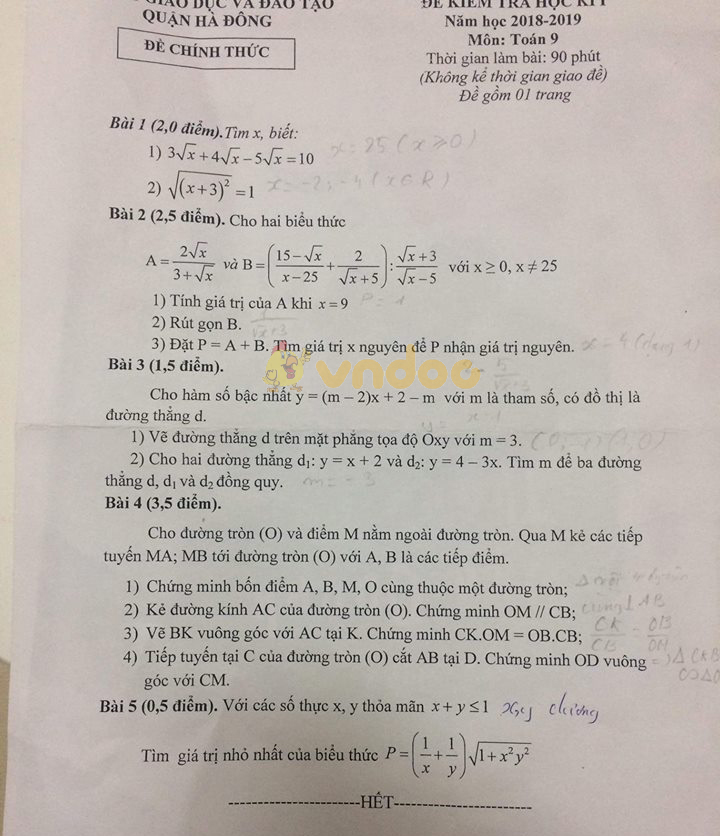 GIÁO DỤC VÀ ĐÀO TẠO
QUẬN HÀ ĐÔNG
ĐỀ CHÍNH THỨC
ĐỀ KIỂM TRA HỌC KỲ I
Năm học 2018-2019
Môn: Toán 9
Thời gian làm bài: 90 phút
(Không kể thời gian giao đề)
Đề gồm 01 trang
Bài 1 (2,0 điểm). Tìm x, biết:
1) 3√x + 4√x − 5√x = 10 x = 25 (x ≥ 0)
2) √((x+3)²) = 1 x = -2; -4 (x ∈ R)
Bài 2 (2,5 điểm). Cho hai biểu thức
A = 2√x/(3+√x) và B = ((15−√x)/(x−25) + 2/(√x+5)) : (√x+3)/(√x−5) với x ≥ 0, x ≠ 25
1) Tính giá trị của A khi x = 9
2) Rút gọn B.
3) Đặt P = A + B. Tìm giá trị x nguyên để P nhận giá trị nguyên.
vndoc
Bài 3 (1,5 điểm).
Cho hàm số bậc nhất y = (m – 2)x + 2 – m với m là tham số, có đồ thị là
đường thẳng d.
1) Vẽ đường thẳng d trên mặt phẳng tọa độ Oxy với m = 3.
2) Cho hai đường thẳng d₁: y = x + 2 và d₂: y = 4 – 3x. Tìm m để ba đường
thẳng d, d₁ và d₂ đồng quy. m = -3
Bài 4 (3,5 điểm).
Cho đường tròn (O) và điểm M nằm ngoài đường tròn. Qua M kẻ các tiếp
tuyến MA; MB tới đường tròn (O) với A, B là các tiếp điểm.
1) Chứng minh bốn điểm A, B, M, O cùng thuộc một đường tròn;
2) Kẻ đường kính AC của đường tròn (O). Chứng minh OM // CB; cùng ⊥ AB
3) Vẽ BK vuông góc với AC tại K. Chứng minh CK.OM = OB.CB; CK/CB = OB/OM
4) Tiếp tuyến tại C của đường tròn (O) cắt AB tại D. Chứng minh OD vuông
góc với CM.
Bài 5 (0,5 điểm). Với các số thực x, y thỏa mãn x + y ≤ 1 x,y dương
Tìm giá trị nhỏ nhất của biểu thức P = (1/x + 1/y)√(1 + x²y²)
HẾT